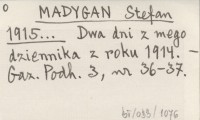 o
MADYGAN Stefan
1915... Dwa dni z mego
dziennika z roku 1914. –
Gaz. Podh. 3, nr 36-37.
bł/033/1076